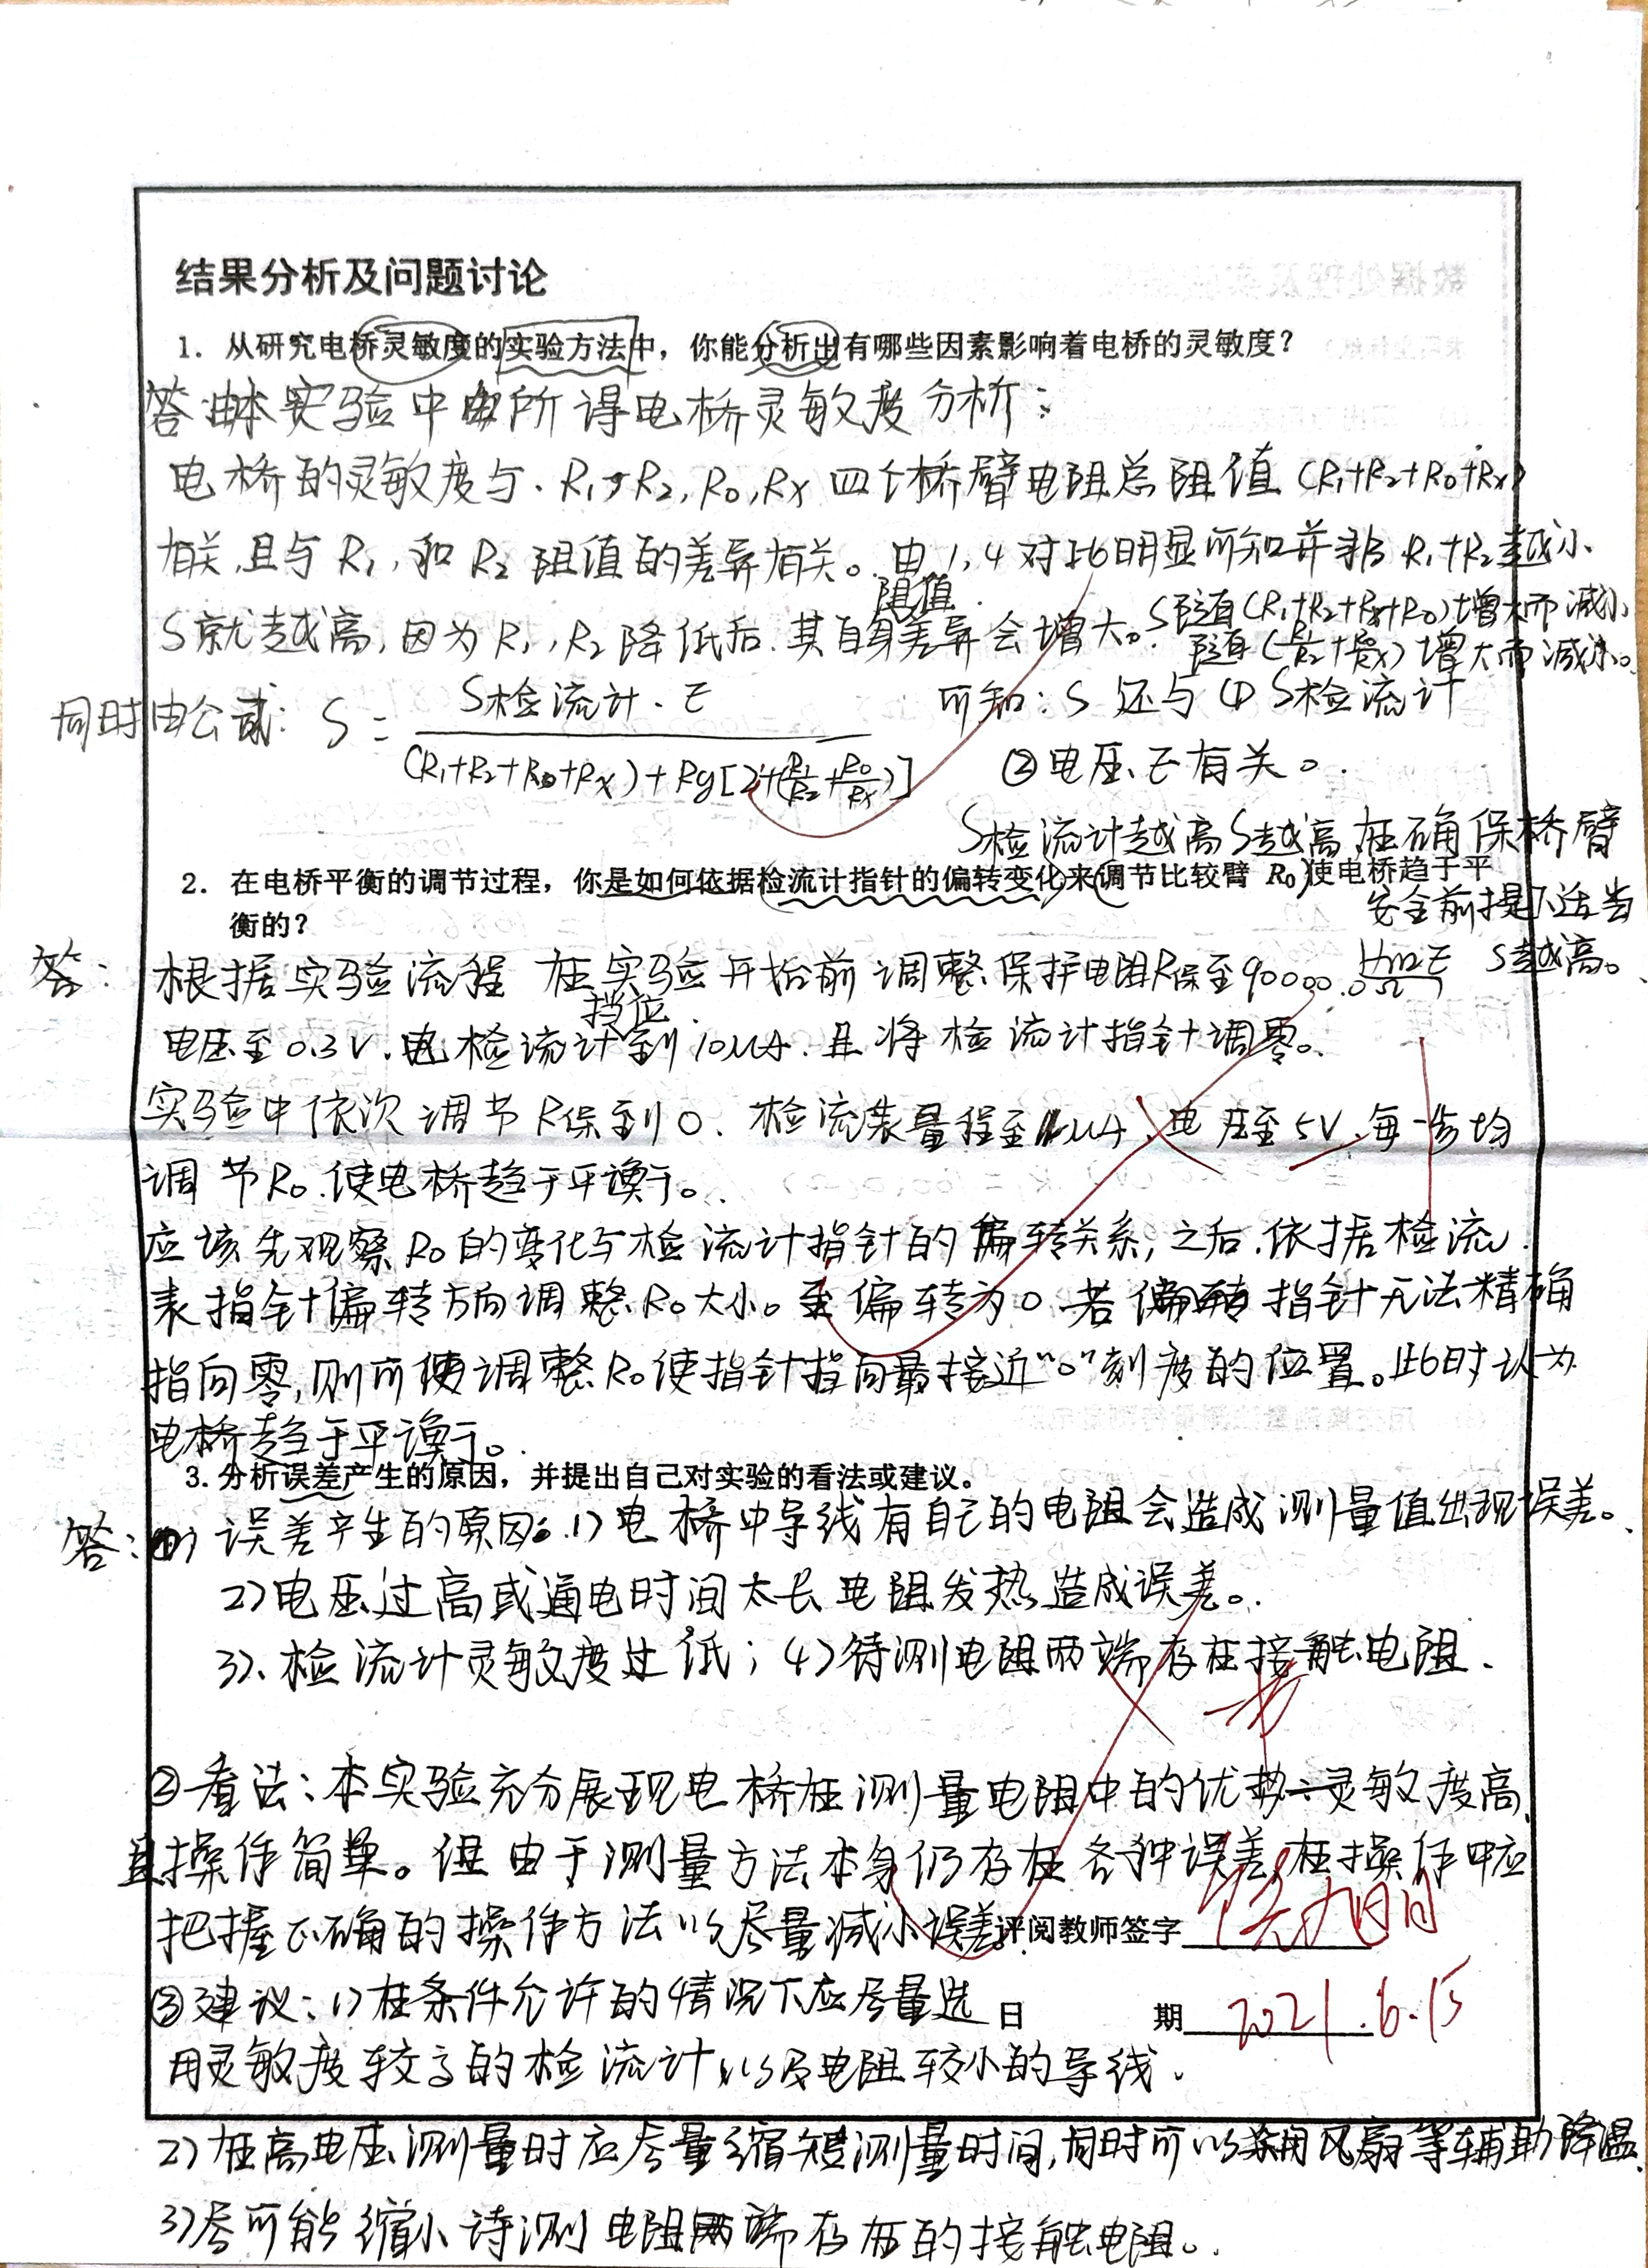 结果分析及问题讨论
1. 从研究电桥灵敏度的实验方法中，你能分析出有哪些因素影响着电桥的灵敏度？
答：由本实验中所得电桥灵敏度分析：
电桥的灵敏度与 R₁, R₂, R₀, Rx 四个桥臂电阻总阻值 (R₁+R₂+R₀+Rx)
有关，且与 R₁, 和 R₂ 阻值的差异有关。由 1, 4 对比明显可知并非 R₁+R₂越小
S就越高，因为 R₁, R₂ 降低后，其自身阻值差异会增大。S随(R₁+R₂+Rx+R₀)增大而减小
随(R₁/R₂+R₀/Rx)增大而减小。
同时由公式: S = S检流计·E / (R₁+R₂+R₀+Rx)+Rg[2+(R₁/R₂+R₀/Rx)]
可知：S 还与 ① S检流计
② 电压E有关。
S检流计越高S越高，在确保桥臂
安全前提下适当
增加E S越高。
2. 在电桥平衡的调节过程，你是如何依据检流计指针的偏转变化来调节比较臂 R₀ 使电桥趋于平
衡的？
答：根据实验流程 在实验开始前调整保护电阻R保至90000.0Ω
电压至0.3V，检流计挡位到10μA，且将检流计指针调零。
实验中依次调节R保到0，检流表量程至1μA，电压至5V，每一步均
调节R₀，使电桥趋于平衡。
应该先观察R₀的变化与检流计指针的偏转关系，之后，依据检流
表指针偏转方向调整R₀大小。至偏转为0 若指针无法精确
指向零，则可便调整R₀使指针指向最接近“0”刻度的位置。此时认为
电桥趋于平衡。
3. 分析误差产生的原因，并提出自己对实验的看法或建议。
答：① 误差产生的原因：1) 电桥中导线有自己的电阻会造成测量值出现误差。
2) 电压过高或通电时间太长 电阻发热造成误差。
3)、检流计灵敏度过低； 4) 待测电阻两端存在接触电阻.
② 看法：本实验充分展现电桥在测量电阻中的优势：灵敏度高，
且操作简单。但由于测量方法本身仍存在各种误差，在操作中应
把握正确的操作方法以尽量减小误差。
评阅教师签字
③ 建议：1) 在条件允许的情况下应尽量选
日 期 2021.6.15
用灵敏度较高的检流计以及电阻较小的导线.
2) 在高电压测量时应尽量缩短测量时间，同时可以采用风扇等辅助降温.
3) 尽可能缩小待测电阻两端存在的接触电阻。